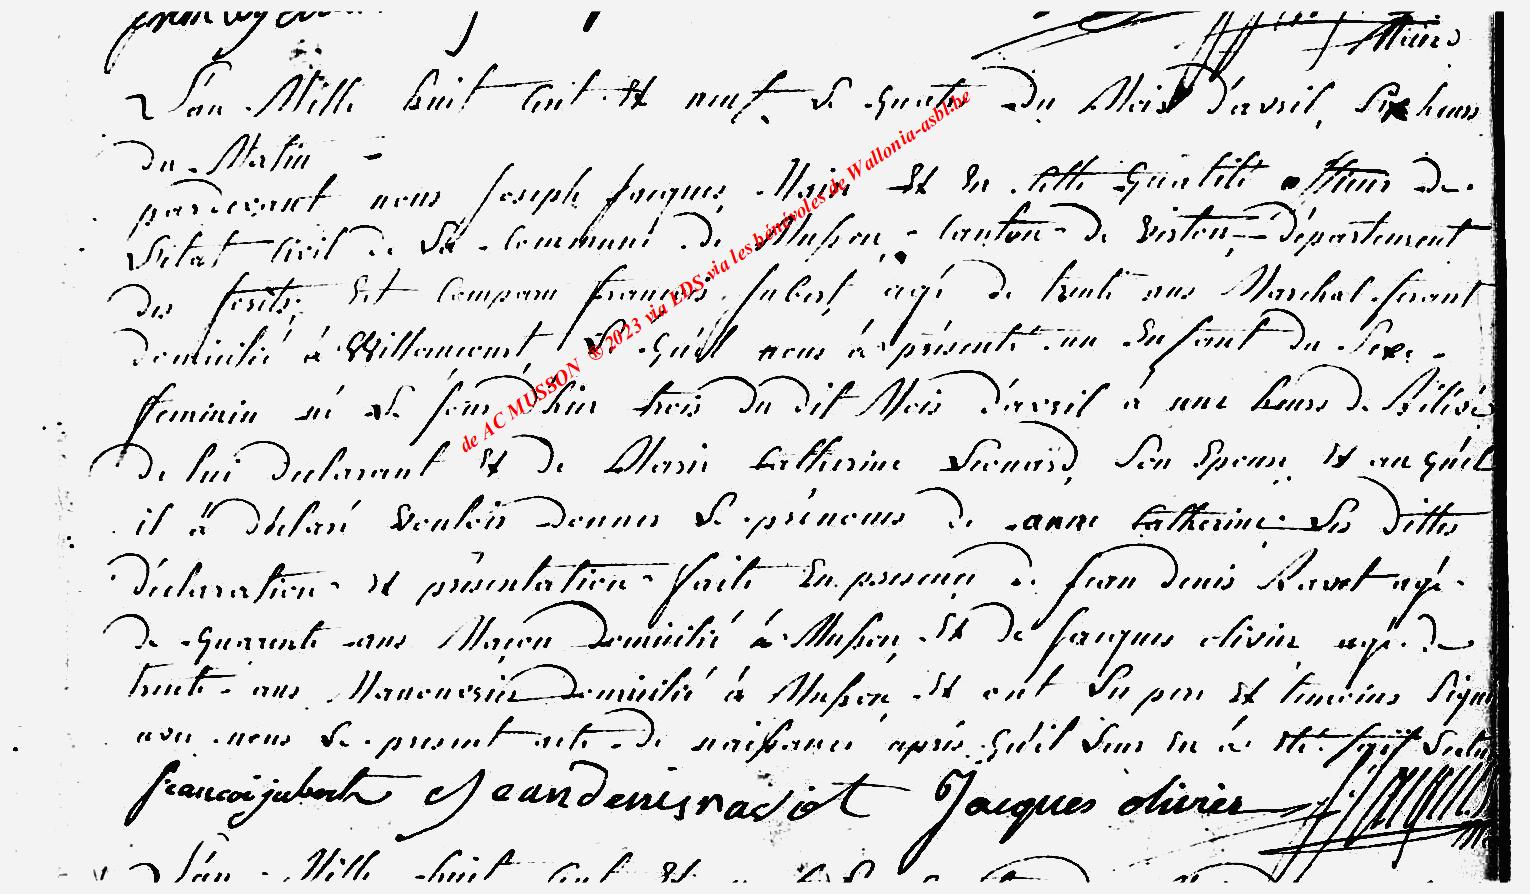 Maire
L'an Mille huit Cent Et neuf Le quatre du Mois d'avril, Six heures
du Matin -
pardevant nous Joseph Jacques Maire Et En Cette qualité officier de
L'état Civil de La Commune de Musson, Canton de Virton, département
des forêts; Est Comparu françois Jubert, agé de trente ans Marchal ferant
domicilié à Willancourt Le quel nous à présenté un Enfant du Sexe
feminin né Le jour d'hier trois du dit Mois d'avril à une heure de Rélévé
de lui declarant Et de Marie Catherine Leonard, Son Epouse Et au quel
il à déclaré Vouloir donner Le prénoms de anne Catherine Les dittes
déclaration Et présentation faite En presence de Jean denis Ravet agé
de quarente ans Maçon Domicilié à Musson Et de Jacques olivier agé de
trente ans Manouvrier Domicilié à Musson Et ont Les pere Et temoins Signé
avec nous Le present acte de naissance après qu'il Leur En à été fait Lecture
françoi jubert Jean denis raviot Jacques olivier
L'an Mille huit Cent Et
de AC MUSSON ® 2023 via LDS via les bénévoles de Wallonia-asbl.be